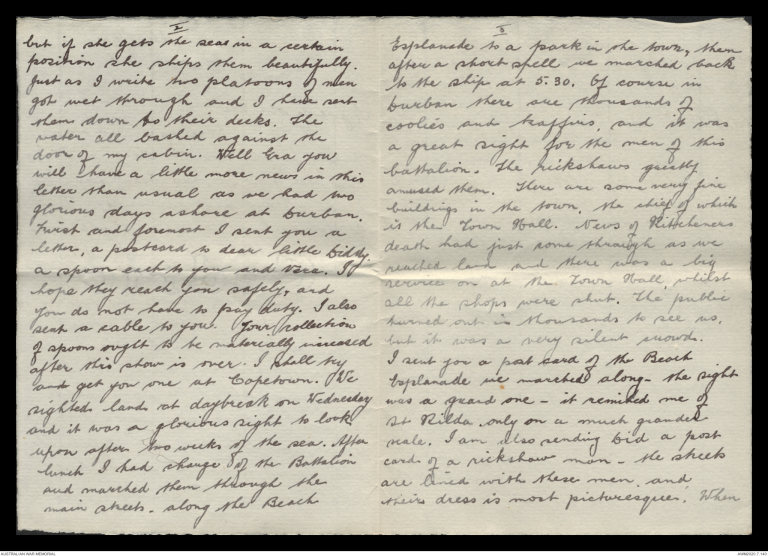 2
but if she gets the seas in a certain
position she ships them beautifully.
Just as I write two platoons of men
got wet through and I have sent
them down to their decks. The
water all bashed against the
door of my cabin. Well Era you
will have a little more news in this
letter than usual as we had two
glorious days ashore at Durban.
First and foremost I sent you a
letter, a postcard to dear little Biddy
a spoon each to you and Vera. I
hope they reach you safely, and
you do not have to pay duty. I also
sent a cable to you. Your collection
of spoons ought to be materially increased
after this show is over. I shall try
and get you one at Capetown. We
sighted land at daybreak on Wednesday
and it was a glorious sight to look
upon after two weeks of the sea. After
lunch I had charge of the Battalion
and marched them through the
main streets, along the Beach
3
Esplanade to a park in the town, then
after a short spell we marched back
to the ship at 5.30. Of course in
Durban there are thousands of
coolies and kaffirs, and it was
a great sight for the men of this
battalion. The rickshaws greatly
amused them. There are some very fine
buildings in the town, the chief of which
is the Town Hall. News of Kitcheners
death had just come through as we
reached land and there was a big
service on at the Town Hall, whilst
all the shops were shut. The public
turned out in thousands to see us,
but it was a very silent crowd.
I sent you a post card of the Beach
Esplanade we marched along - the sight
was a grand one - it reminded me of
St Kilda only on a much grander
scale. I am also sending Bid a post
card of a rickshaw man - the streets
are lined with these men, and
their dress is most picturesque. When
AUSTRALIAN WAR MEMORIAL